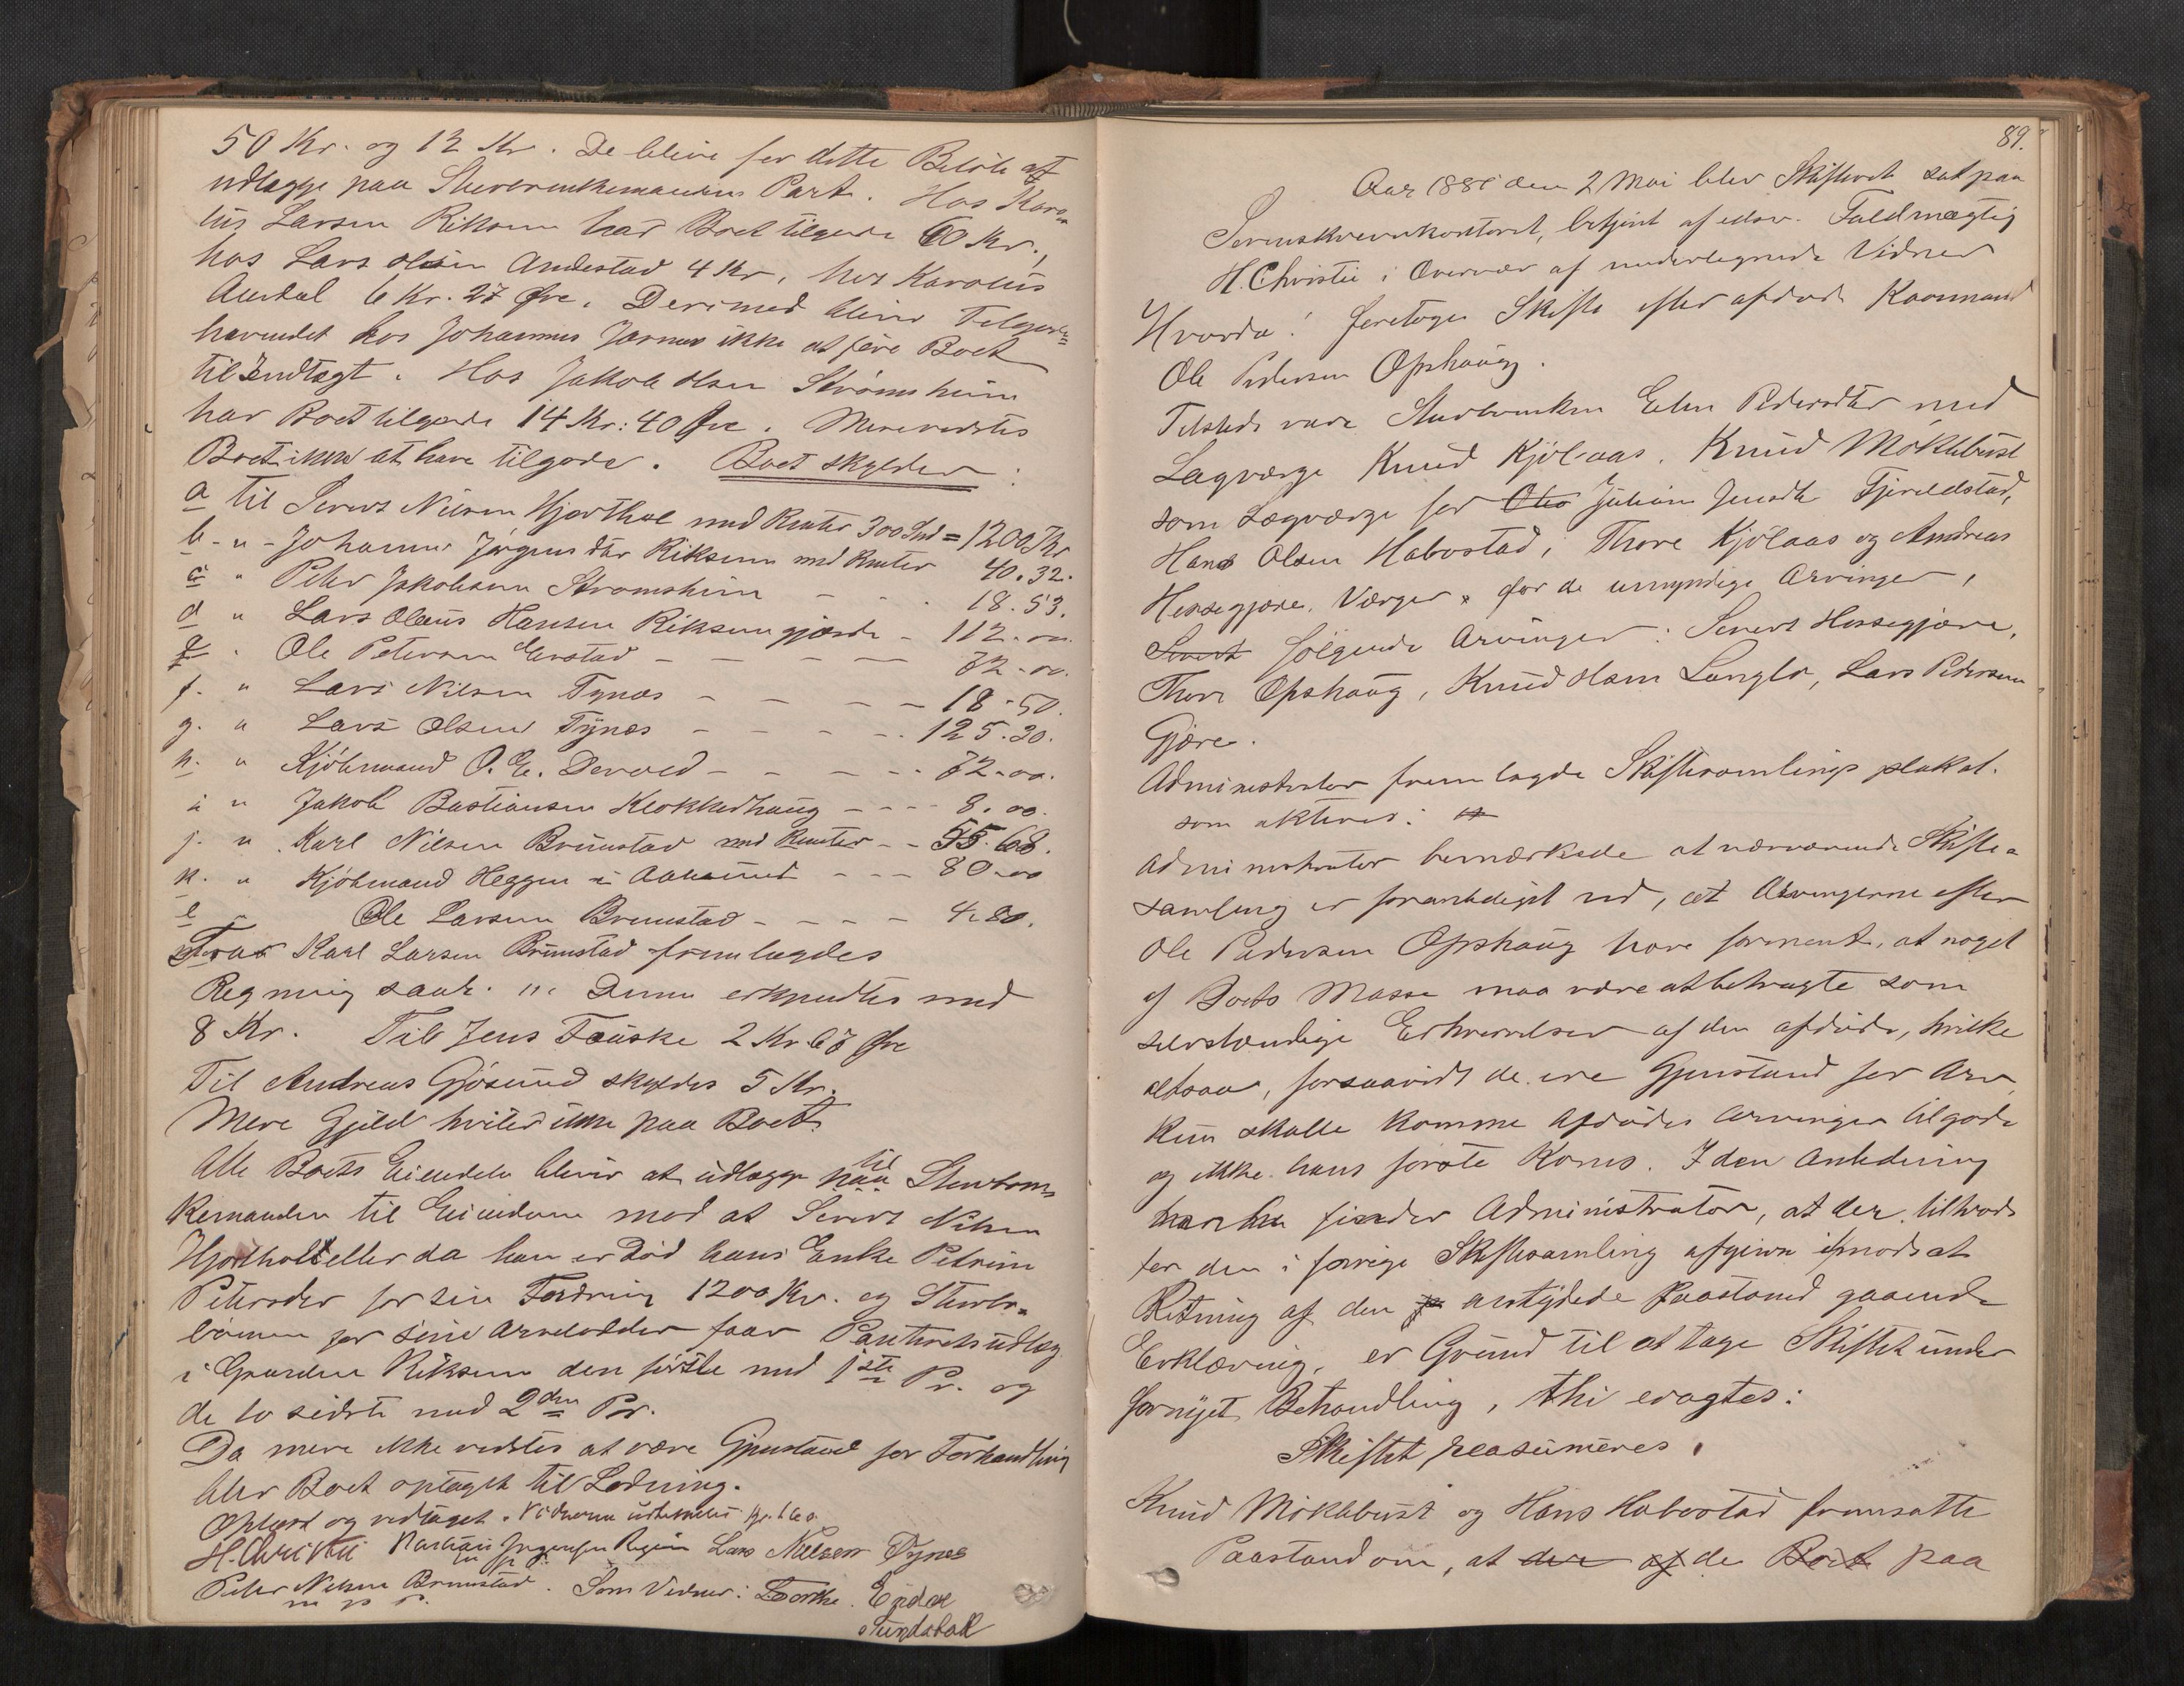 50 Kr. og 12 Kr. De blive for dette Beløb at
udlægge paa Sterbeenkemandens Part. Hos Karo=
lus Larsen Riksem har Boet tilgode 60 Kr.,
hos Lars Olsen Andestad 4 Kr., hos Karolus
Aursdal 6 Kr. 27 Øre. Derimod bliver Tilgode=
havendet hos Johannes ikke at føre Boet
til Indtægt. Hos Jakob Olsen Strømsheim
har Boet tilgode 14 Kr: 40 Øre. Mere vidstes
Boet ikke at have tilgode. Boet skylder:
a til Sivert Nilsen Hjorthol med Renter 300 Spd = 1200 Kr
b - " - Johanne Jørgensdtr Riksem med Renter 40.32.
c " Peter Jakobsen Strømsheim - - - 18.53.
d " Lars Olaus Hansen Riksemgjærde - 112-00.
e " Ole Petersen Erstad - - - - 72-00.
f. " Lars Nilsen Tynæs - - - - 18-50.
g. " Lars Olsen Tynæs - - - - 125.30.
h. " Kjøbmand O. E. Devold - - - - 72-00.
i " Jakob Bastiansen Klokkerhaug - - - - 8.00.
j. " Karl Nilsen Brunstad med Renter - - 55.68.
k. " Kjøbmand Heggen i Aalesund - - - 80-00
l " Ole Larsen Brunstad - - - - 4.80.
Fra Karl Larsen Brunstad fremlagdes
Regning saal. ". Denne erkjendtes med
8 Kr. Til Jens Fauske 2 Kr. 67 Øre
Til Andreas Gjøsund skyldes 5 Kr.
Mere Gjeld hviler ikke paa Boet.
Alle Boets Eiendele bliver at udlægge til Sterboen=
kemanden til Eiendom mod at Sivert Nilsen
Hjorthol eller da han er død hans Enke Petrine
Petersdtr for sin Fordring 1200 Kr. og Sterbo=
børnene for sine Arvelodder faar Panterets udlæg
i Gaarden Riksem den første med 1ste Pr. og
de to sidste med 2den Pr.
Da mere ikke vidstes at være Gjenstand for Forhandling
blev Boet optaget til Lodning.
Oplæst og vedtaget. Vidnerne
H. Christie Lars Nielsen Tynes
Peter Nilsen Brunstad. Som Vidner: Endre
m p P. Sundsbak
89.
Aar 1881 den 2 Mai blev Skifteret sat paa
Sorenskriverkontoret, betjent af edsv. Fuldmægtig
H. Christie i Overvær af undertegnede Vidner
Hvorda: foretoges Skifte efter afdøde Kaarmand
Ole Pedersen Opshaug.
Tilstede vare Sterboenken Elen Pedersdtr med
Lagværge Knud Kjølaas. Knud Möklebust
som Lagværge for Oles Juliane Jensdtr Fjeldstad,
Hans Olsen Habostad, Thore Kjölaas og Andreas
Hessegjære, Værger for de umyndige Arvinger,
Sivert følgende Arvinger: Sivert Hessegjære,
Thore Opshaug, Knud Olsen Langlo, Lars Pedersen
Gjære.
Administrator fremlagde Skiftesamlingsplakat.
som akteres:
Administrator bemærkede at nærværende Skifte=
samling er foranlediget ved, at Arvingerne efter
Ole Pedersen Opshaug have forment, at noget
af Boets Masse maa være at betragte som
selvstændige Erhvervelser af den afdøde, hvilke
altsaa, forsaavidt de ere Gjenstand for Arv,
kun skulle komme Afdødes Arvinger tilgode
og ikke hans første Kones. I den Anledning
finder Administrator, at der tiltrods
for den i forrige Skiftesamling afgivne imod at
Retning af den antydede Paastand gaaende
Erklæring, er Grund til at tage Skiftet under
fornyet Behandling, thi eragtes:
Skiftet reasumeres.
Knud Möklebust og Hans Habostad fremsatte
Paastand om, at der af de Boet paa